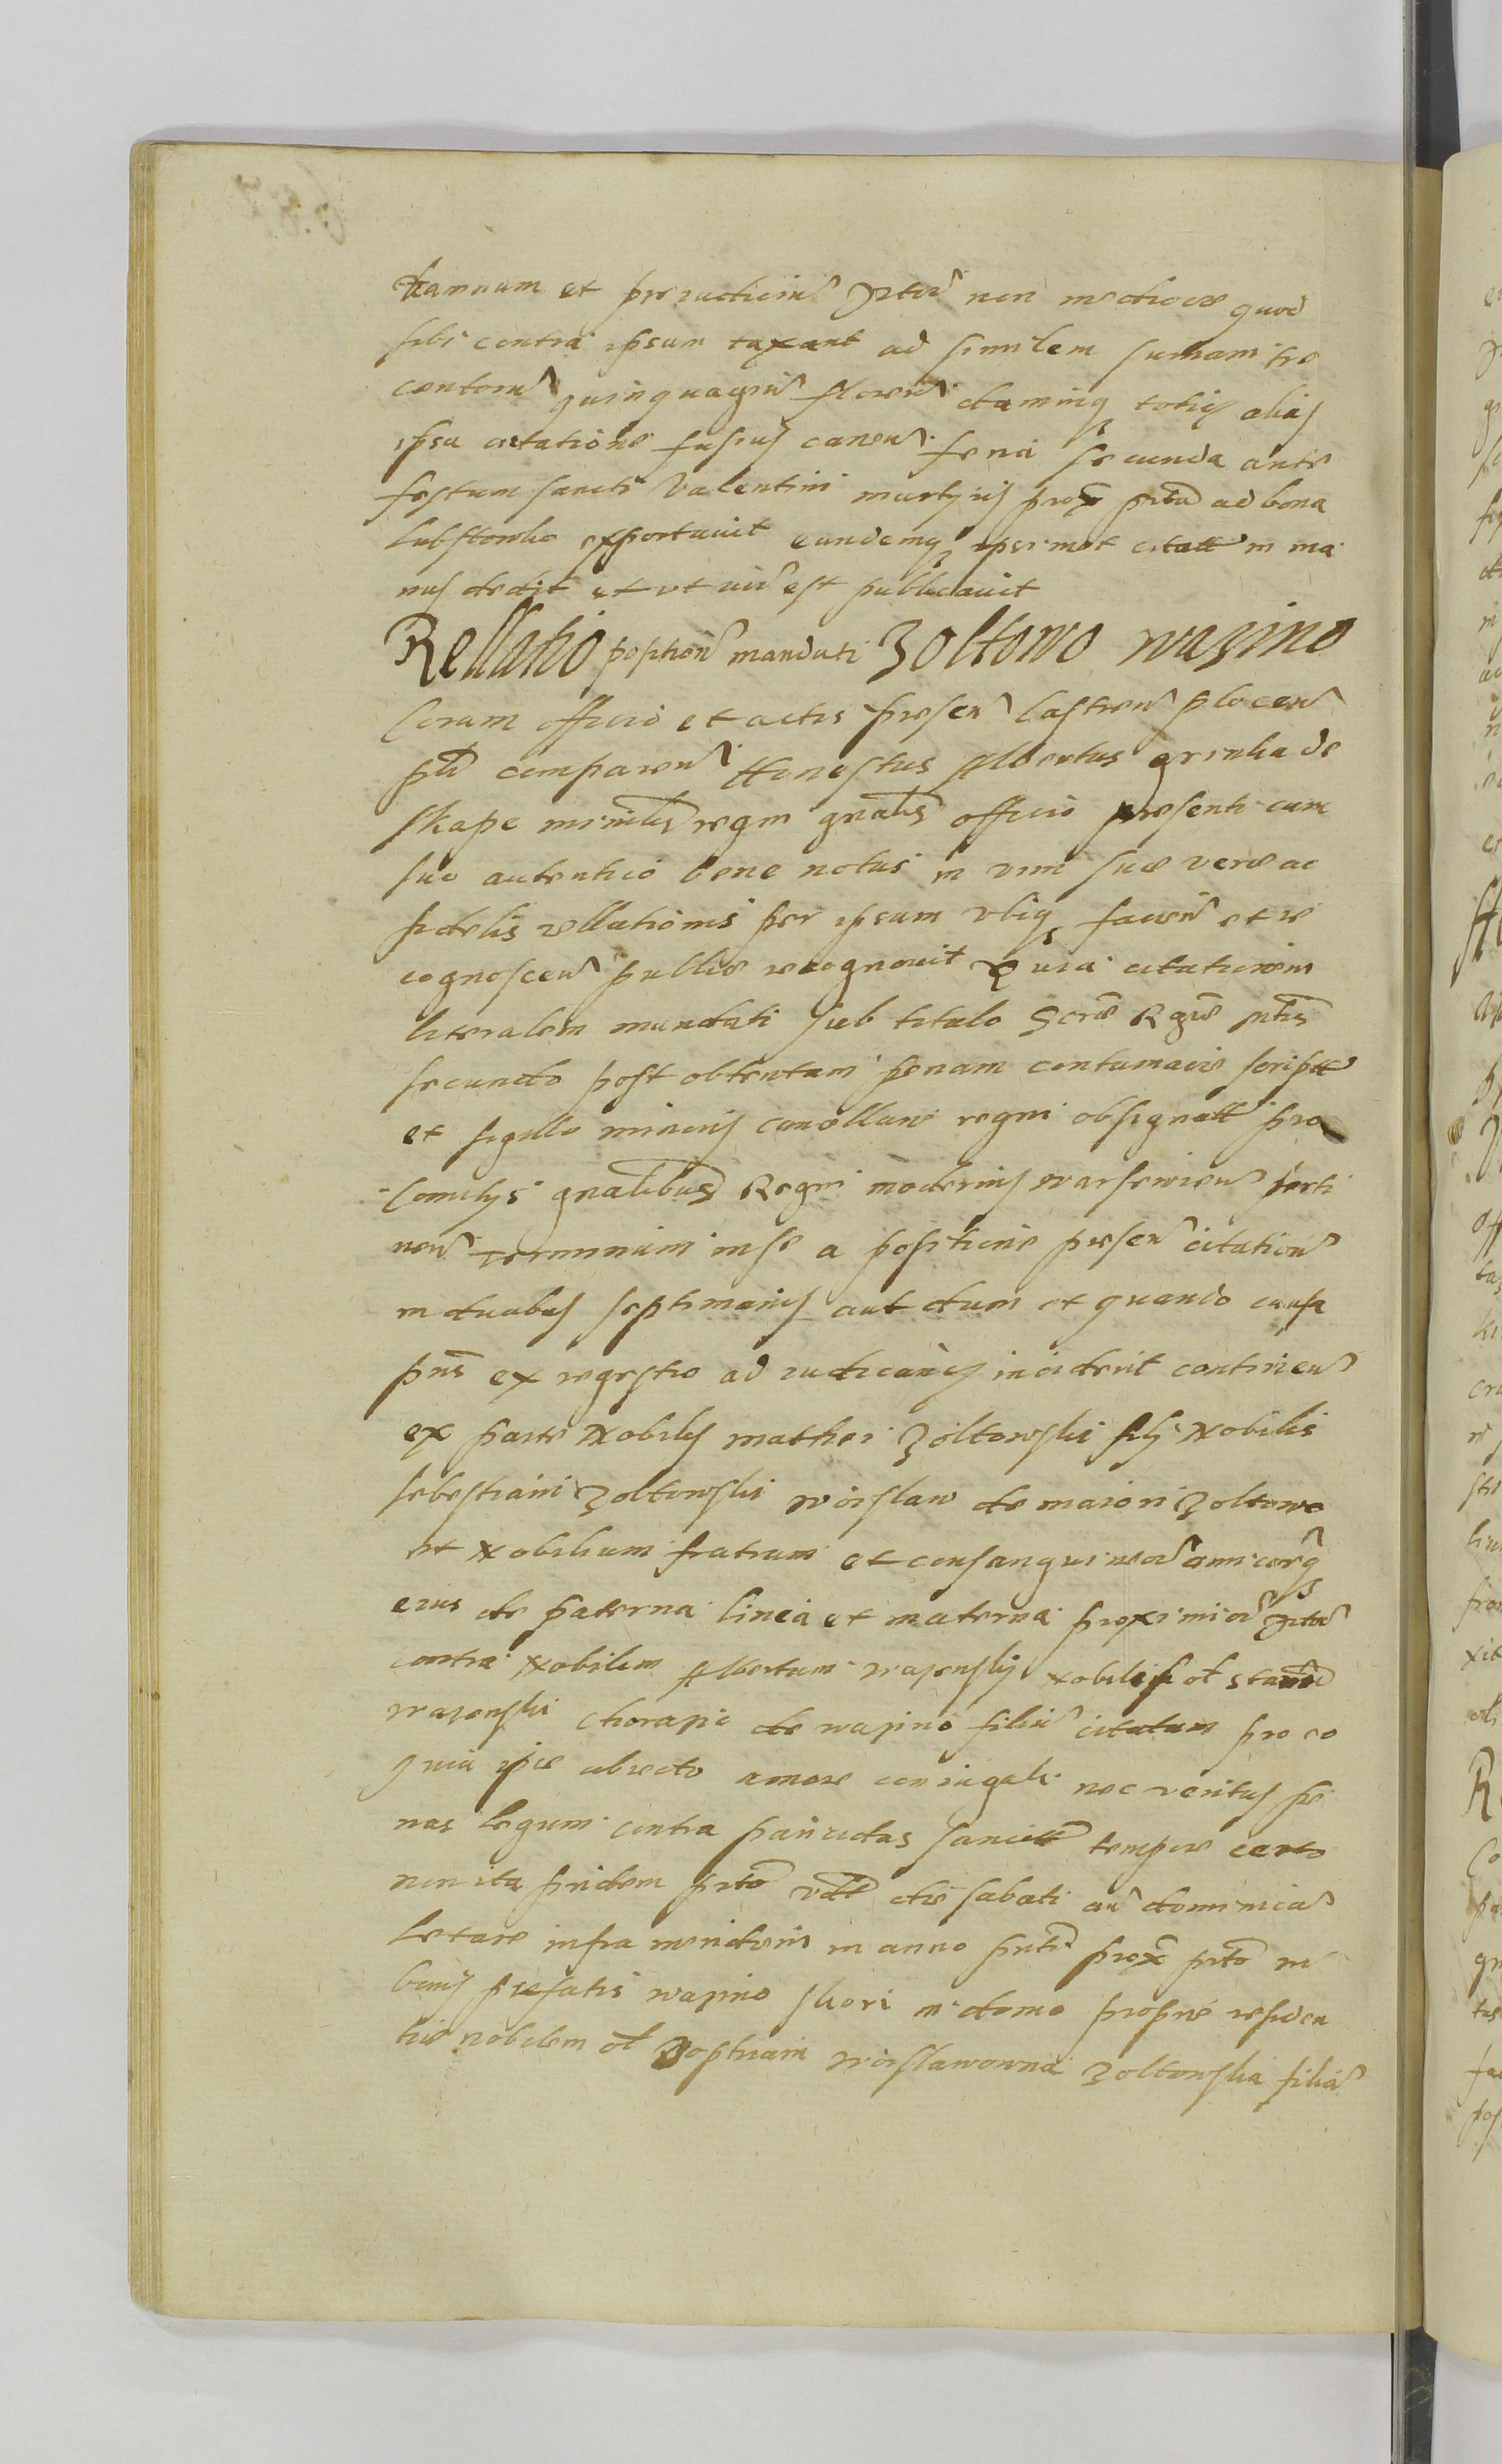 damnum et preiudiciu non mediocre quod
sibi contra ipsum taxant ad similem sumam tre
centoru quinquagin floren damniq totiq alias
ipsa citatione fusius canen feria secunda ante
festum sancti Valentini martyris prox prita ad bona
exportauit eandemq ipsimet citatt in ma
nus dedit et ut iur est publicauit
Rellatio position mandati Zoltowo wazino
Coram officio et actis presen Castren plocen
ptr comparen Honestus Albertus grinka de
Skape minilis regni gnalis officio presenti cum
suo autentico bene notus in vim sue vere ac
fidelis rellationis per ipsum vbiq facien et re
cognoscen publice recognouit Quia citationem
literalem mandati sub titulo Scre Rgie mtis
secundo post obtentam penam contumacie scriptt
et sigillo minoris cancellarie regni obsignatt pro
Comitijs gnalibus Regni modernis warsewien perti
nen terminum in se a positione presen citation
in duabus septimanis aut dum et quando causa
pns ex regestro ad iudicandu inciderit continen
ex parte Nobilis mathei Zoltowski filij Nobilis
sebestiani Zoltowski woislaw de maiori Zoltowo
et Nobilium fratrum et consanguineor amicorq
eius de paterna linea et materna proximior
contra Nobilem Albertum wazenskij Nobilis ol stanis
wazenski chorazic de wazino filiu citatum pro eo
quia ipse abiecto amore coniugali nec veritus pe
nas legum contra paricidas sancitt tempore certo
non ita pridem prito vdtt die sabati an dominica
letare infra meridiem in anno pnti prox prito in
bonis prefatis wazino skori in domo proprie residen
tie nobilem ol Zophiam woislawowna Zoltowska filia